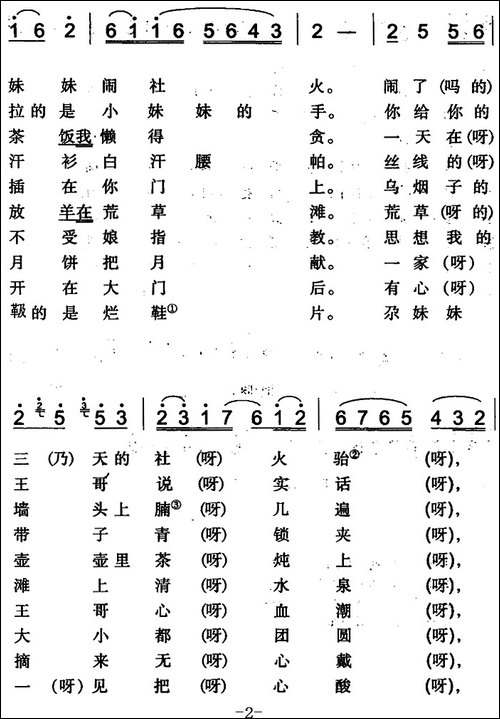 1 6 2 6 1 1 6 5 6 4 3 2 — 2 5 5 6
妹 妹 闹 社 火。 闹 了 (吗 的)
拉的 是 小 妹 妹 的 手。 你 给 你 的
茶 饭我 懒 得 贪。 一 天 在 (呀)
汗 衫 白 汗 腰 帕。 丝 线 的 (呀)
插 在 你 门 上。 乌 烟 子 的
放 羊在 荒 草 滩。 荒 草 (呀 的)
不 受 娘 指 教。 思 想 我 的
月 饼 把 月 献。 一 家 (呀)
开 在 大 门 后。 有 心 (呀)
靸的 是 烂 鞋① 片。 尕 妹 妹
2 5 5 3 2 3 1 7 6 1 2 6 7 6 5 4 3 2
三 (乃) 天 的 社 (呀) 火 骀② (呀),
王 哥 说 (呀) 实 话 (呀),
墙 头 上 腩③ (呀) 几 遍 (呀),
带 子 青 (呀) 锁 夹 (呀),
壶 壶 里 茶 (呀) 炖 上 (呀),
滩 上 清 (呀) 水 泉 (呀),
王 哥 心 (呀) 血 潮 (呀),
大 小 都 (呀) 团 圆 (呀),
摘 来 无 (呀) 心 戴 (呀),
一 (呀) 见 把 (呀) 心 酸 (呀),
-2-